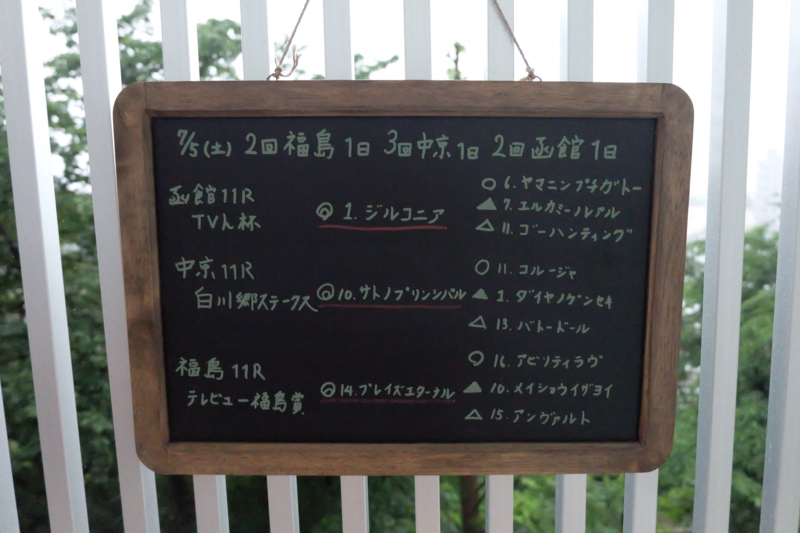 7/5(土) 2回福島1日 3回中京1日 2回函館1日
函館11R
TVh杯
◎ 1. ジルコニア
○ 6. ヤマニンプチガトー
▲ 7. エルカミーノレアル
△ 11. ゴーハンティング
中京11R
白川郷ステークス
◎ 10. サトノプリンシパル
○ 11. コルージャ
▲ 1. ダイヤノゲンセキ
△ 13. バトードール
福島11R
テレビュー福島賞
◎ 14. ブレイズエターナル
○ 16. アビリティラヴ
▲ 10. メイショウイザヨイ
△ 15. アンヴァルト